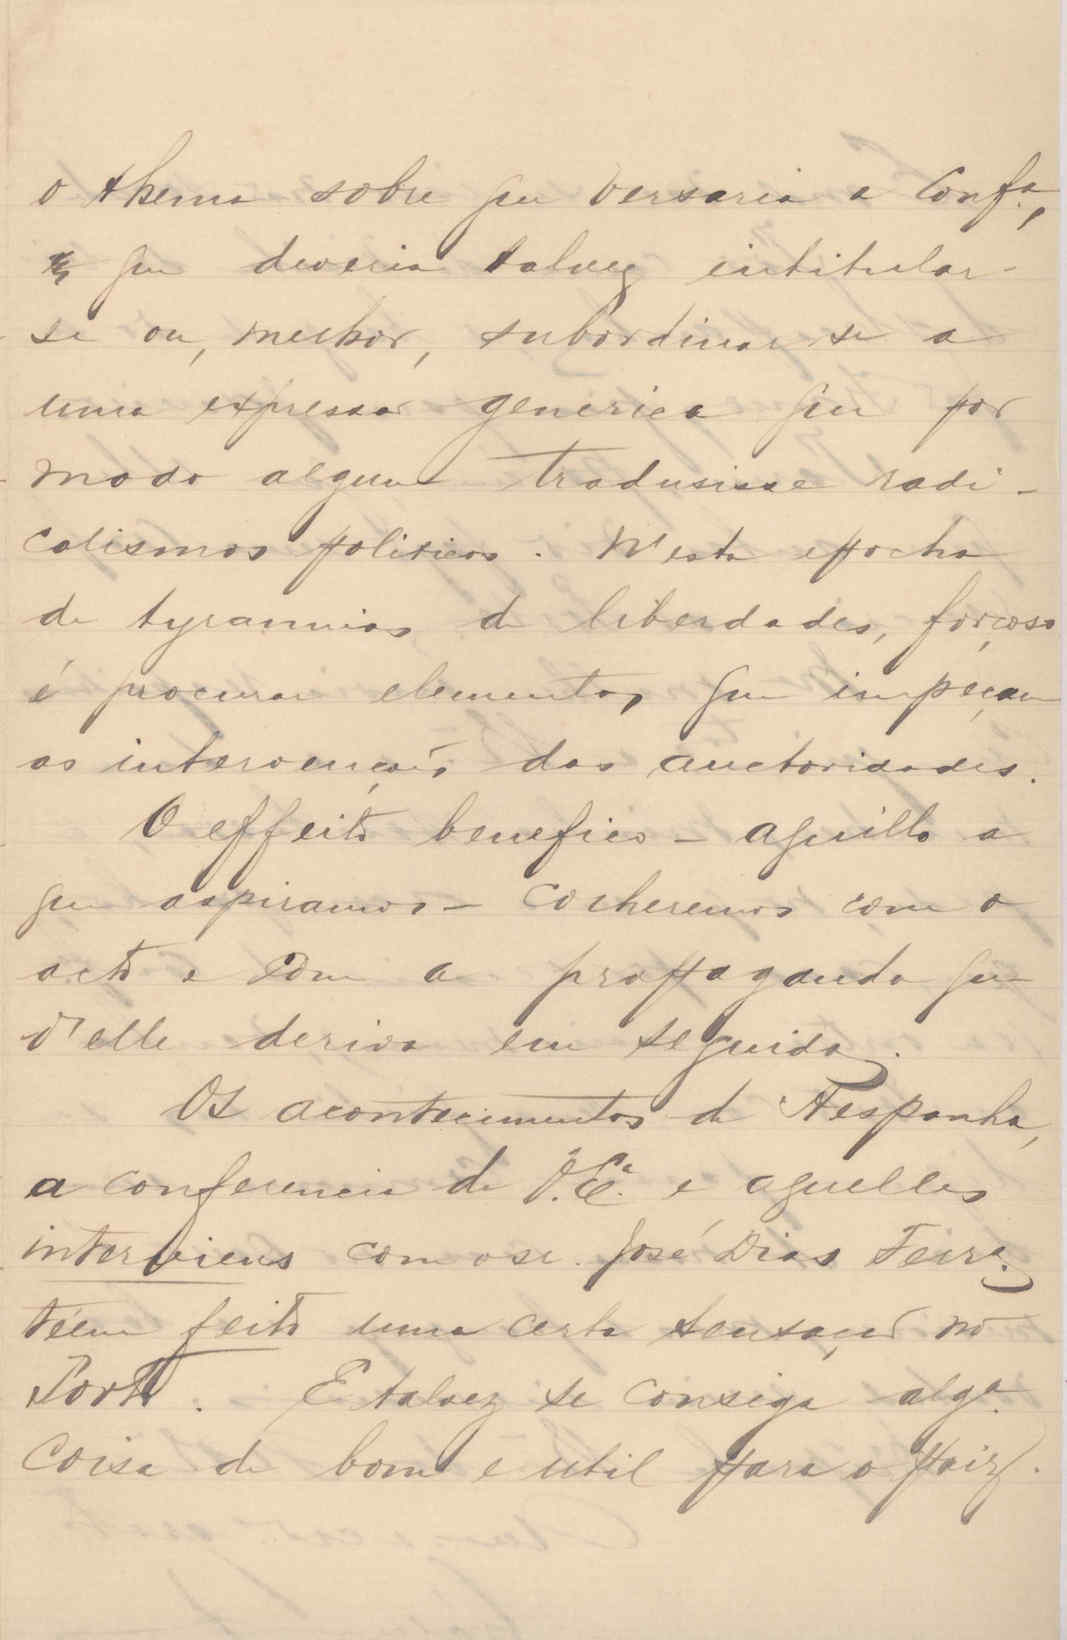 o thema sobre que versaria a Conf.ª,
que deveria talvez intitular-
se ou, melhor, subordinar se a
uma expressão generica que por
modo algum tradusisse radi-
calismos politicos. N'esta epocha
de tyrannias de liberdades, forçoso
é procurar elementos que impeçam
as intervenções das auctoridades.
O effeito benefico – aquillo a
que aspiramos – colheremos com o
acto e com a propaganda que
d'elle deriva em seguida.
Os acontecimentos de Hespanha,
a conferencia de V. Ex.ª e aquelles
interviews com o sr. José Dias Ferr.ª
téem feito uma certa sensação no
Porto. E talvez se consiga alg.ª
coisa de bom e util para o paiz.